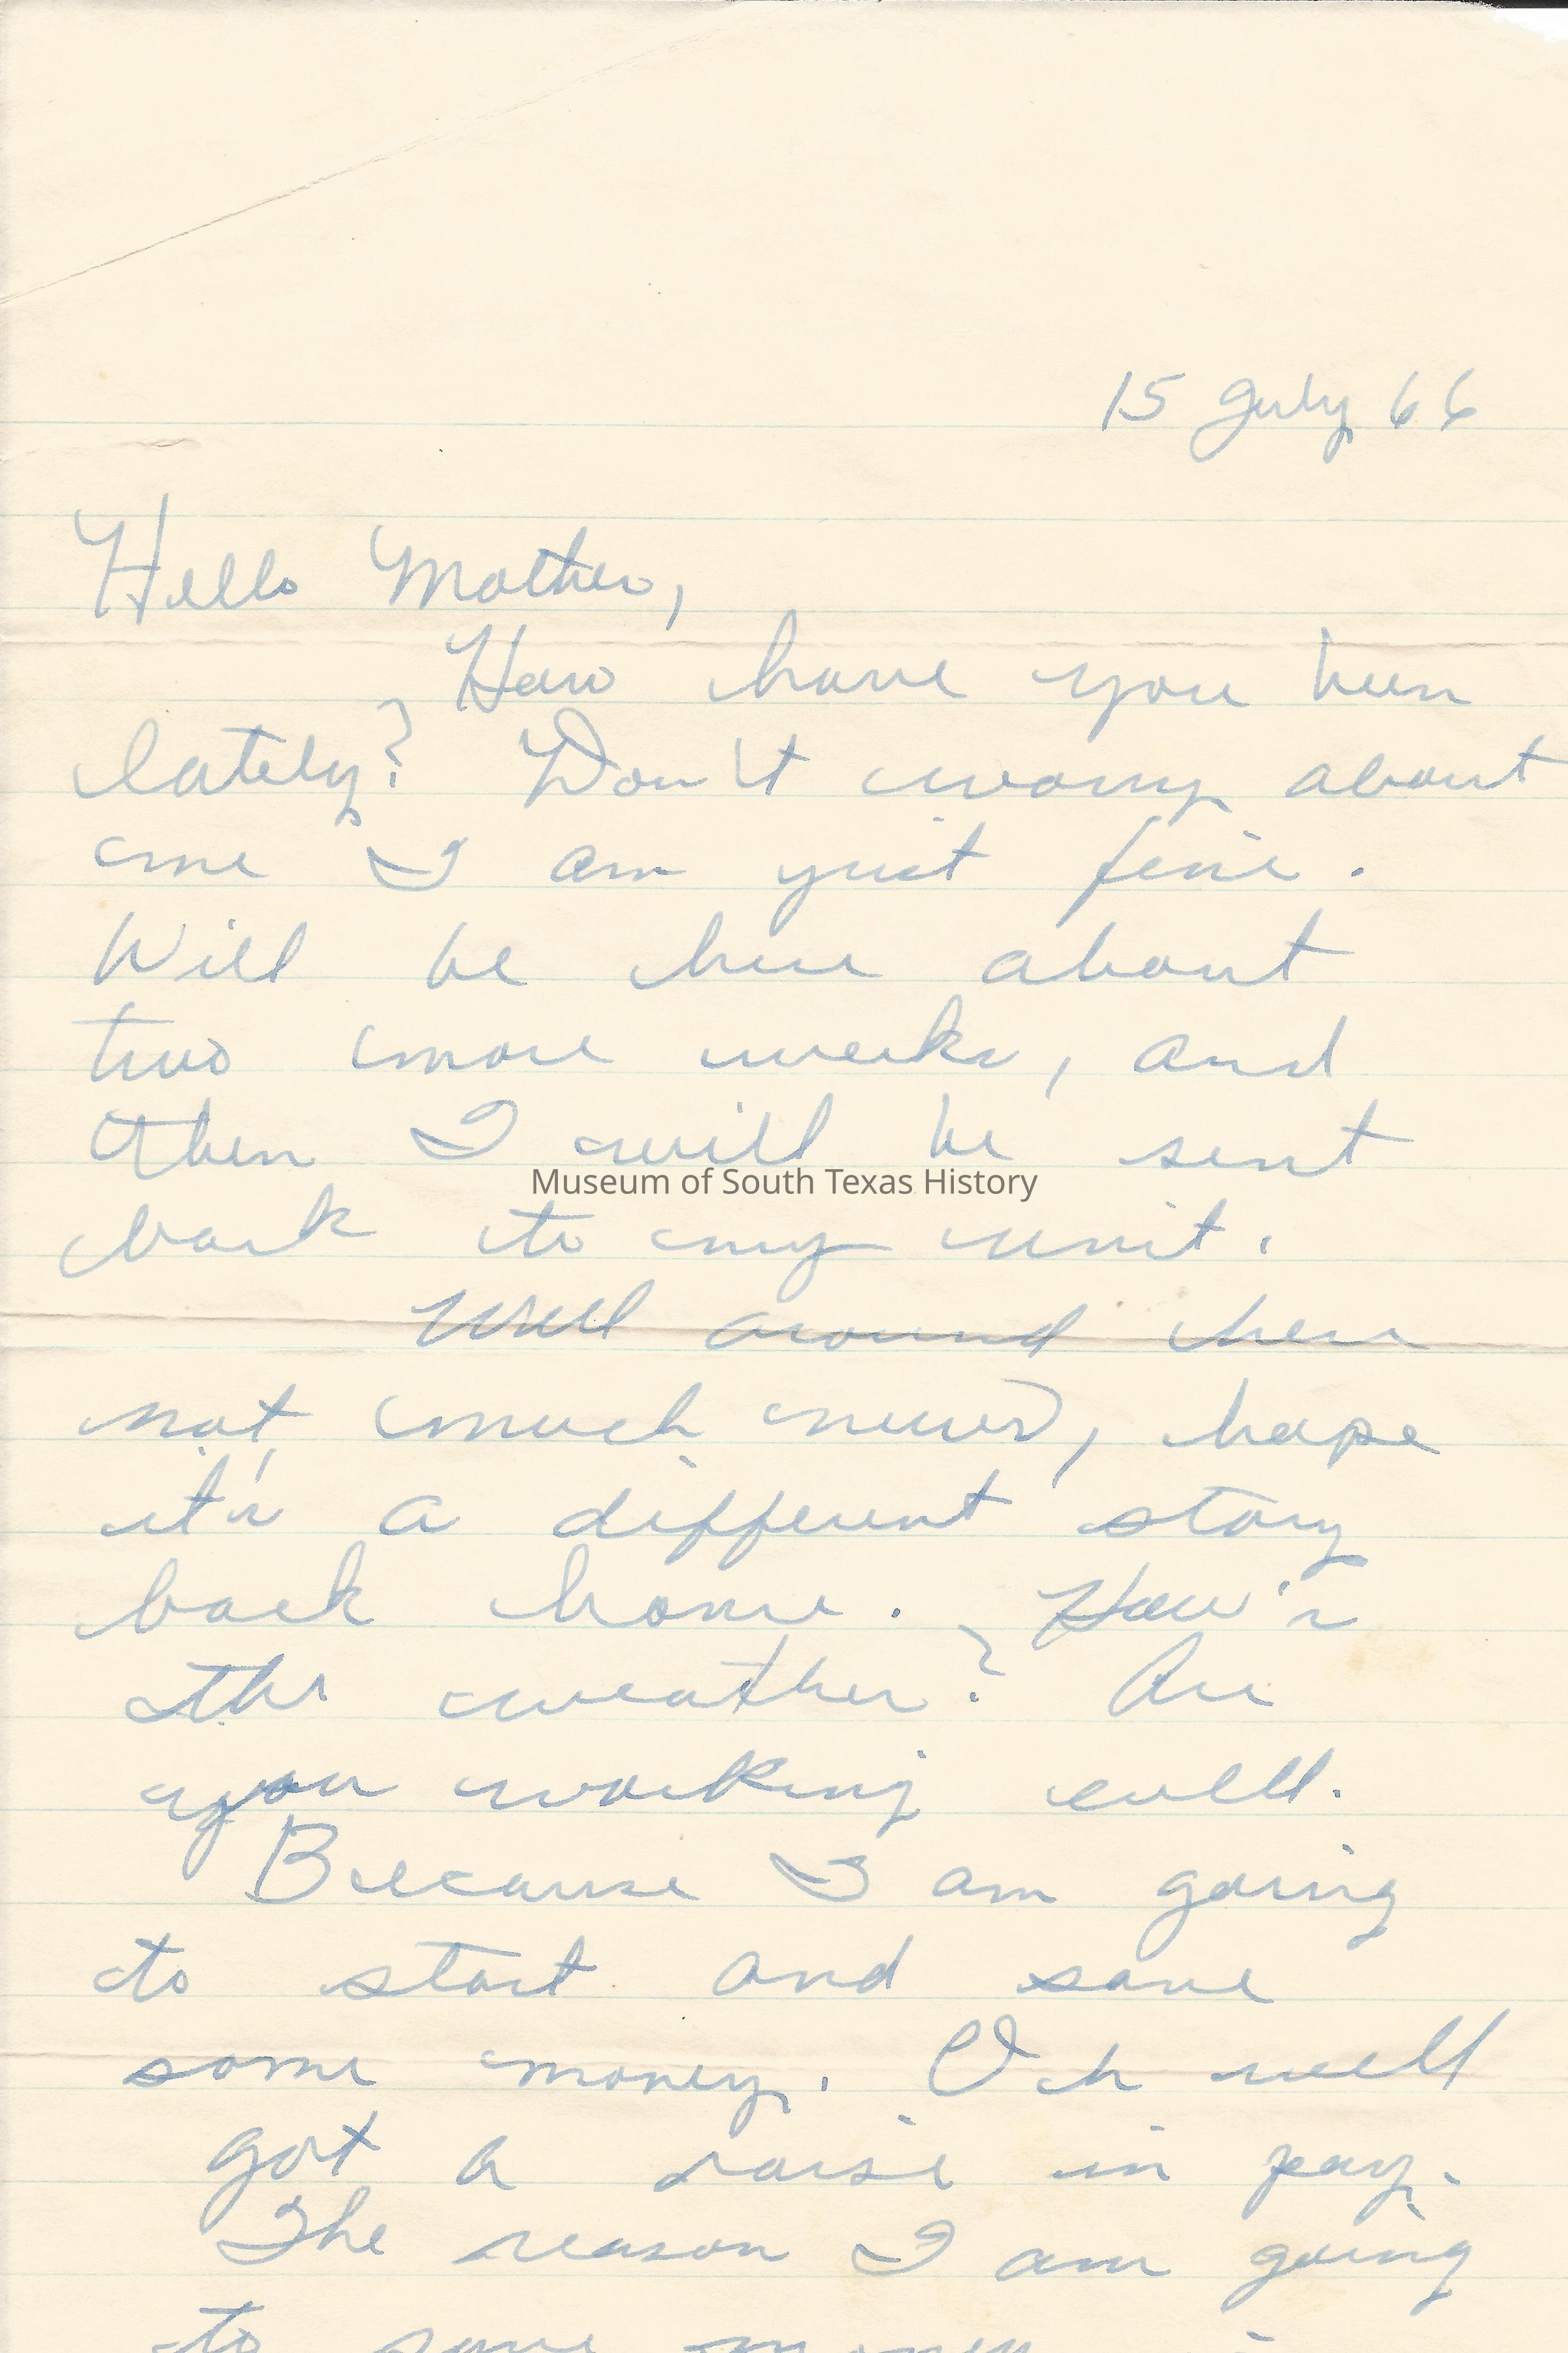 15 July 66
Hello Mother,
How have you been
lately? Don't worry about
me I am just fine.
Will be here about
two more weeks, and
then I will be sent
Museum of South Texas History
back to my unit.
Well around here
not much news, hope
it's a different story
back home. How's
the weather? Are
you working well.
Because I am going
to start and save
some money. Oh well
got a raise in pay.
The reason I am going
to save money is